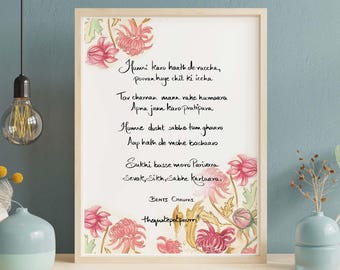 Humri karo haath de raccha,
pooran hoye chit ki iccha.
Tav charnan mann rahe humaara
Apna jaan karo pratipara.
Humre dusht sabhe tum ghaavo
Aap hath de mohe bachavo
Sukhi basse moro Parivara
Sevak, sikh, sabhe kartaara.
BENTI CHAUPAI
thequotepotpourri